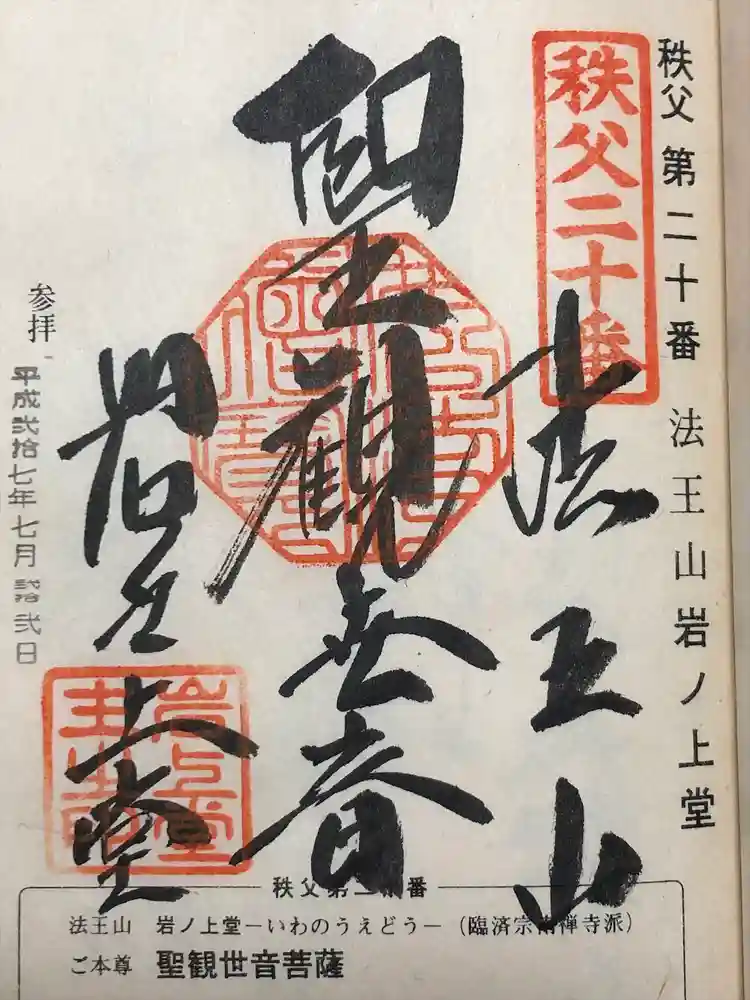 秩父 第二十番 法王山岩ノ上堂
秩父二十番
法王山
聖観世音
岩之上堂
参拝
平成弐拾七年七月弐拾弐日
秩父第二十番
法王山 岩ノ上堂－いわのうえどう－（臨済宗南禅寺派）
ご本尊 聖観世音菩薩